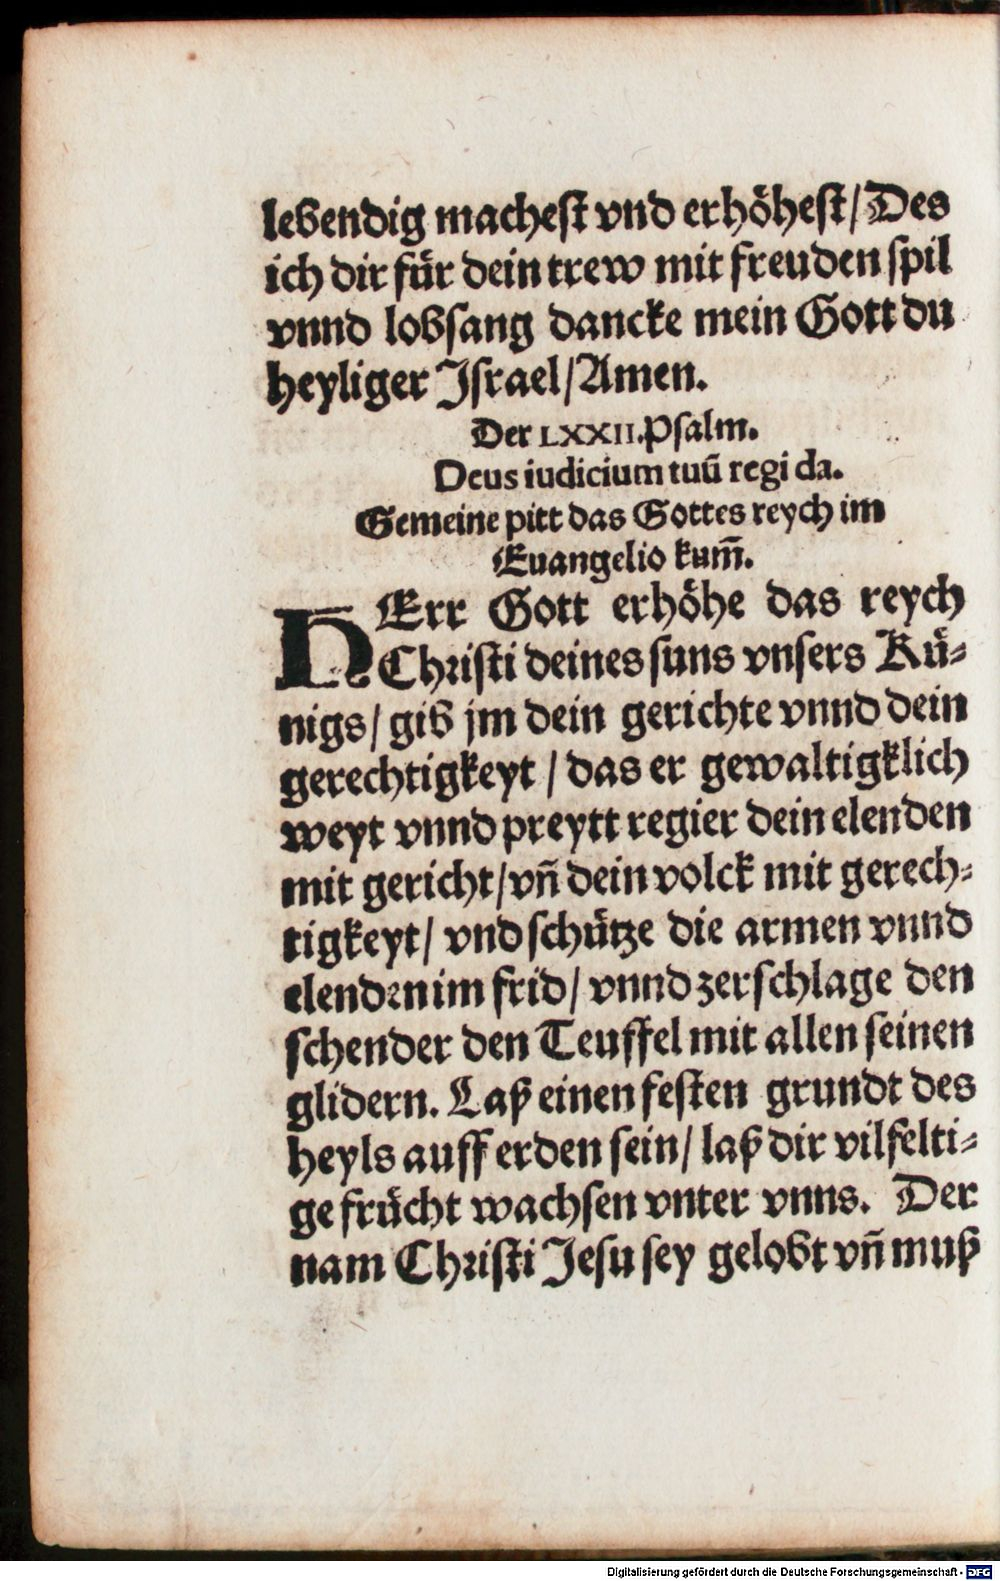 lebendig machest vnd erhöhest/ Des
ich dir für dein trew mit freuden spil
vnnd lobsang dancke mein Gott du
heyliger Israel/ Amen.
Der LXXII. Psalm.
Deus iudicium tuū regi da.
Gemeine pitt das Gottes reych im
Euangelio kum̄.
HErr Gott erhöhe das reych
Christi deines suns vnsers Kü-
nigs/ gib jm dein gerichte vnnd dein
gerechtigkeyt/ das er gewaltigklich
weyt vnnd preytt regier dein elenden
mit gericht/ vñ dein volck mit gerech-
tigkeyt/ vnd schütze die armen vnnd
elenden im frid/ vnnd zerschlage den
schender den Teuffel mit allen seinen
glidern. Laß einen festen grundt des
heyls auff erden sein/ laß dir vilfelti-
ge frücht wachsen vnter vnns. Der
nam Christi Jesu sey gelobt vñ muß
Digitalisierung gefördert durch die Deutsche Forschungsgemeinschaft - DFG